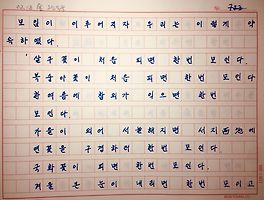 모임이 이루어지자 우리는 이렇게 약
속하였다.
살구꽃이 처음 피면 한번 모인다.
복숭아꽃이 처음 피면 한번 모인다.
한여름에 참외가 익으면 한번
모인다.
가을이 되어 서늘해지면 서지에
연꽃을 구경하러 한번 모인다.
국화꽃이 피면 한번 모인다.
겨울 큰 눈이 내리면 한번 모이고